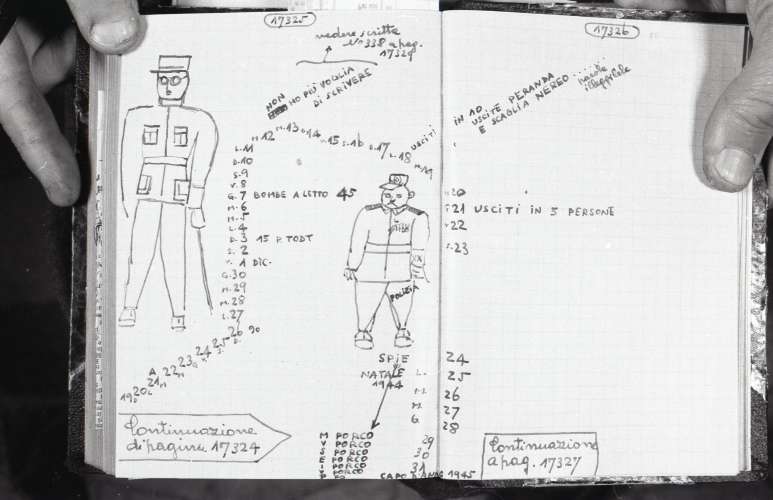 17325
vedere scritta
N° 338 a pag.
17329
NON
HO PIÙ VOGLIA
DI SCRIVERE
M 12 M.13 14 15 S.16 D.17 L.18 M 19
USCITI
L.11
D.10
S.9
V.8
G.7 BOMBE A LETTO 45
M.6
M.5
L.4
D.3 15 P. TODT
S.2
V.1 DIC.
G.30
M.29
M.28
L.27
26
S.25
24
23
22
21
20
19
POLIZIA
SPIE
NATALE
1944
Continuazione
di pagina 17324
M PORCO
V PORCO
S PORCO
E PORCO
I PORCO
P
L.
M.
M.
G
29
30
31
CAPO D'ANNO 1945
17326
IN 10
USCITE PERANDA
E SCAGLIA NEREO
parole
illeggibile
20
21 USCITI IN 5 PERSONE
22
23
24
25
26
27
28
Continuazione
a pag. 17327